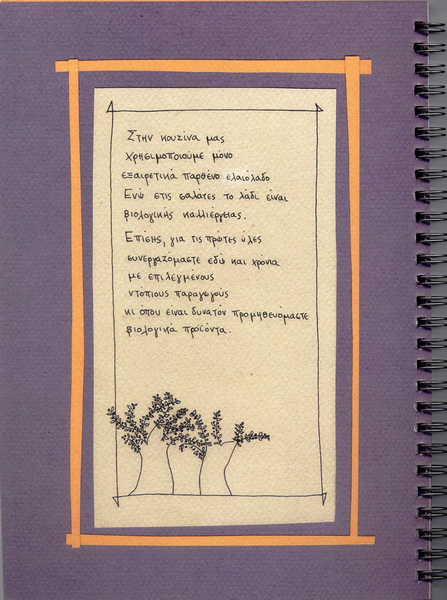 Στην κουζίνα μας
χρησιμοποιούμε μόνο
εξαιρετικά παρθένο ελαιόλαδο
Ενώ στις σαλάτες το λάδι είναι
βιολογικής καλλιέργειας.
Επίσης, για τις πρώτες ύλες
συνεργαζόμαστε εδώ και χρόνια
με επιλεγμένους
ντόπιους παραγωγούς
κι όπου είναι δυνατόν προμηθευόμαστε
βιολογικά προϊόντα.